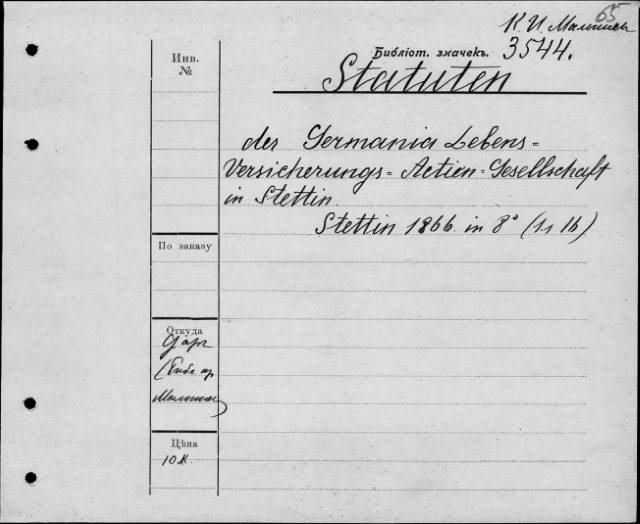 65
К. И. Малышев
Библіот. значекъ.
3544.
Инв.
№
Statuten
der Germania Lebens=
Versicherungs=Actien=Gesellschaft
in Stettin.
Stettin 1866. in 8° (1 16)
По заказу
Откуда
Даръ
(Библ. пр
Малышев)
Цѣна
10 к.